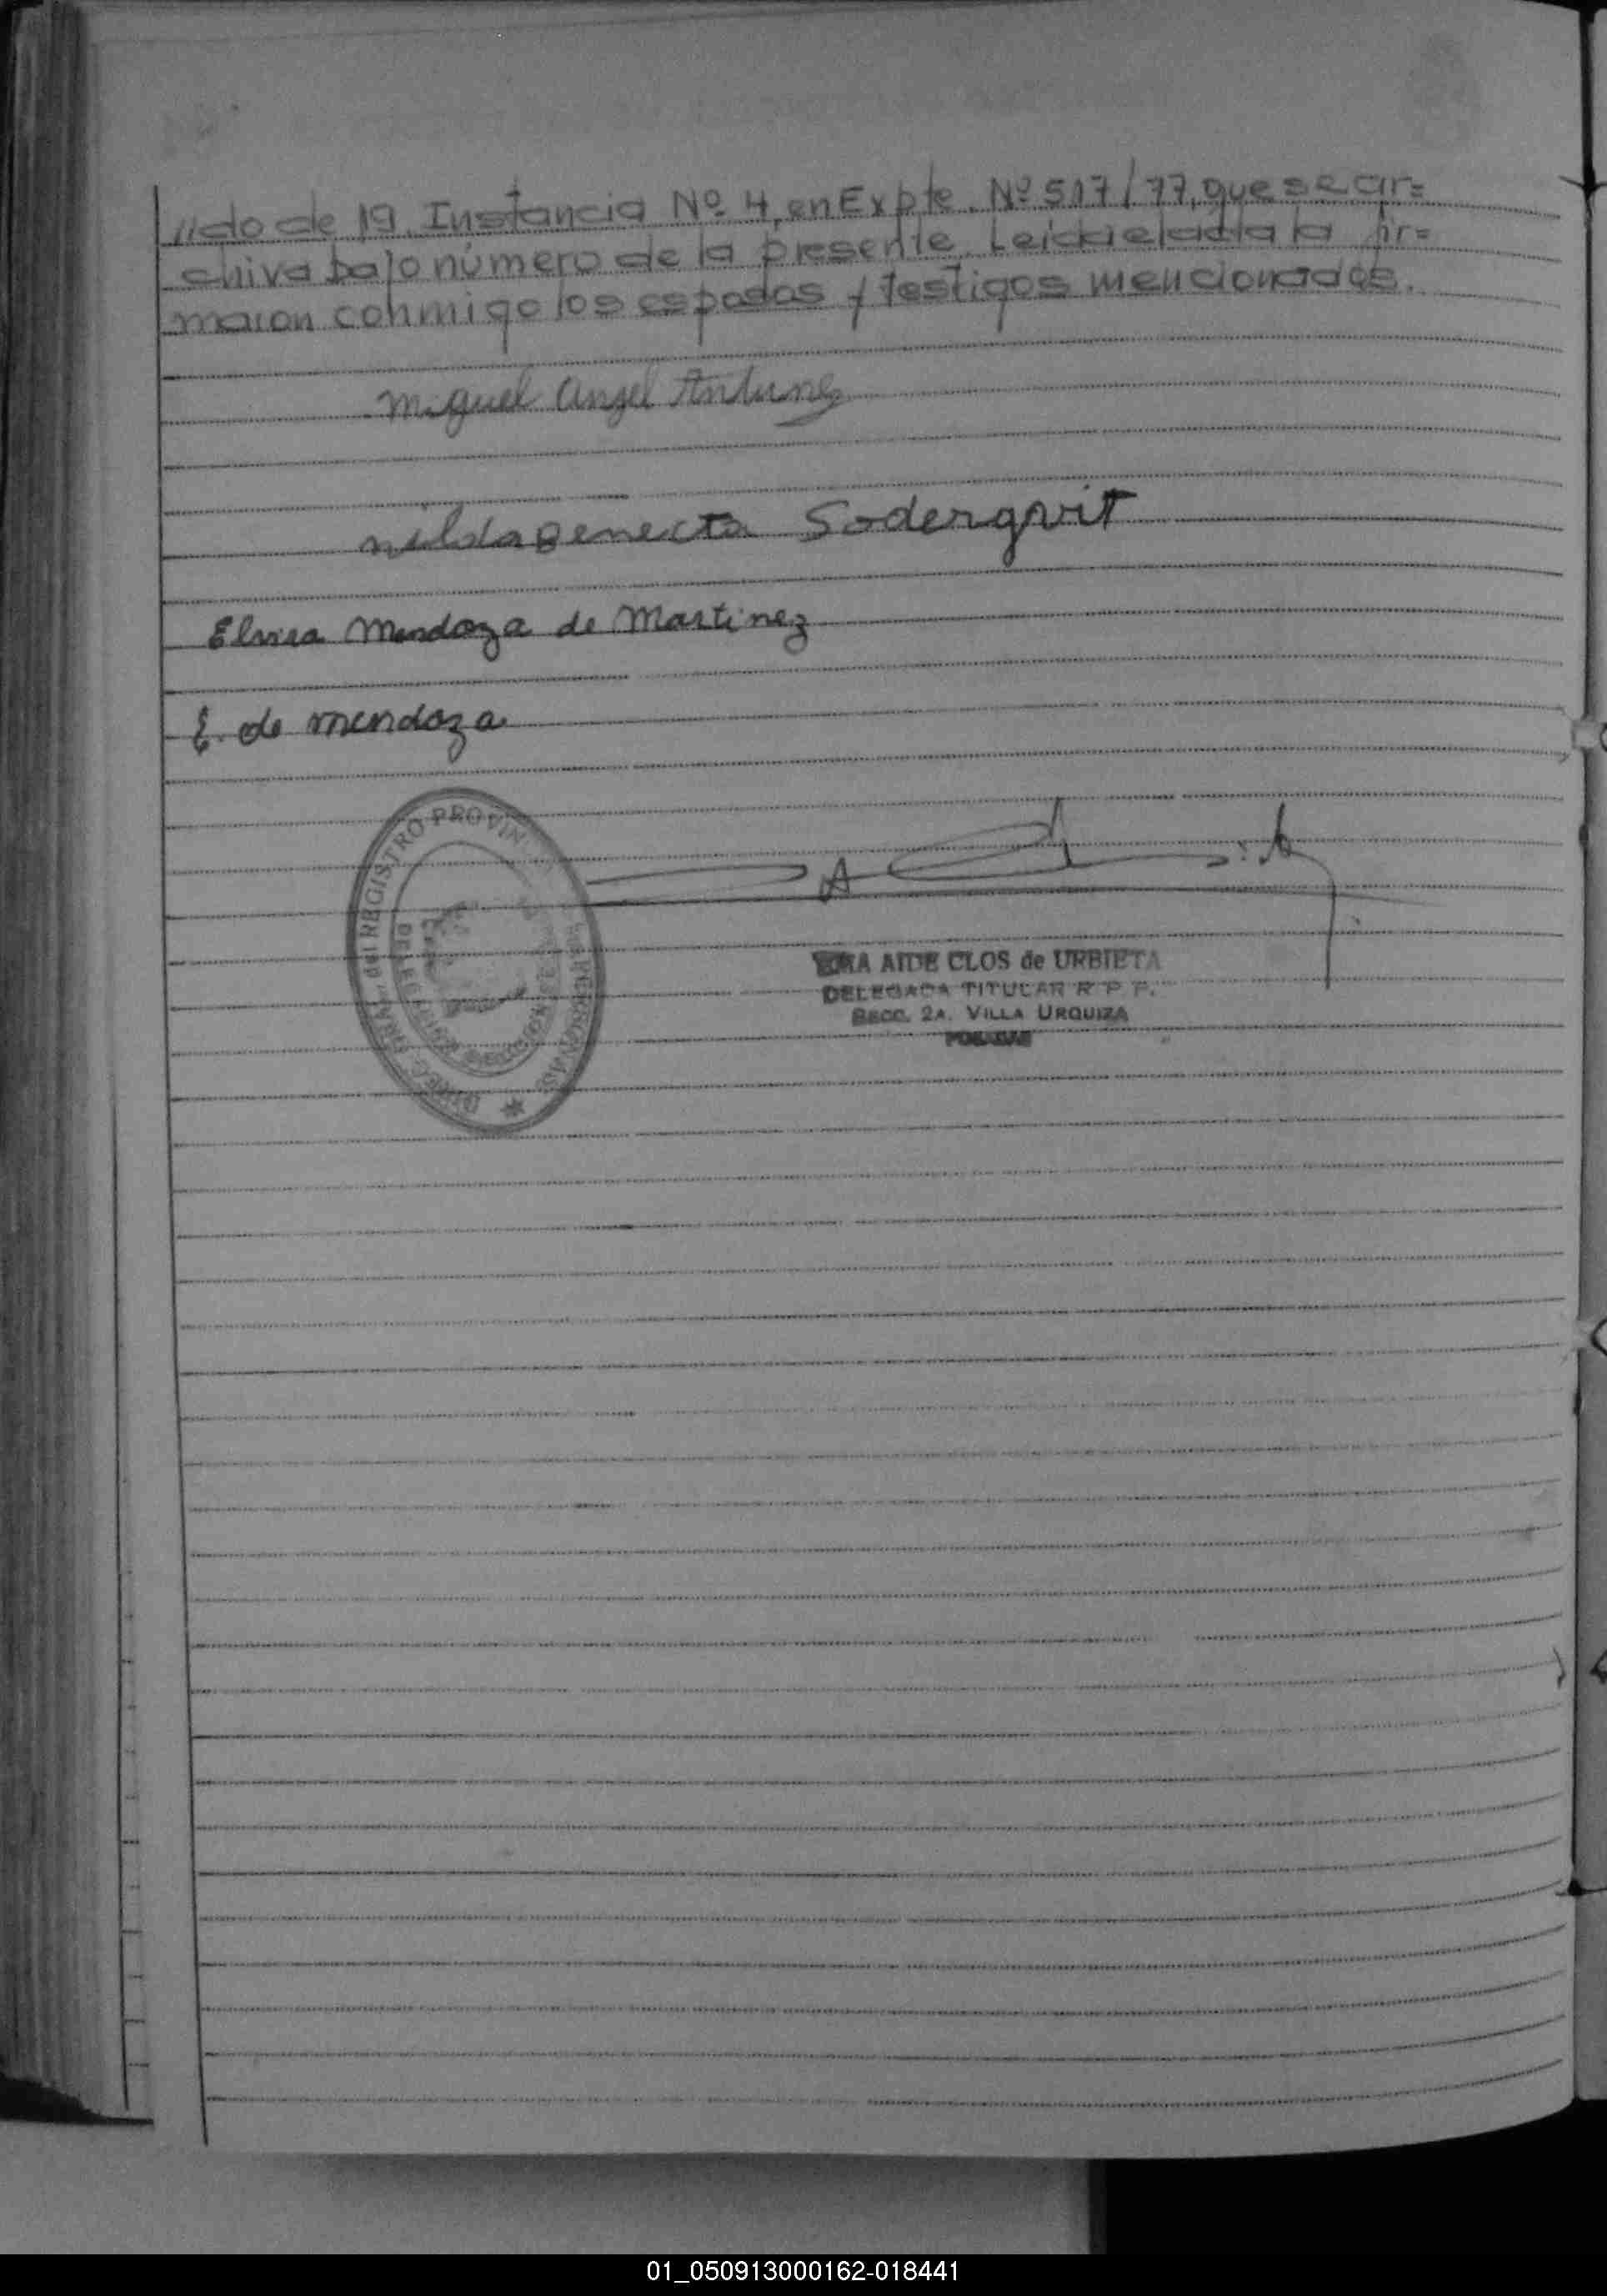 //do de 1ª. Instancia Nº 4, en Expte. Nº 517/77, que se ar=
chiva bajo número de la presente. Leida el acta la fir=
maron conmigo los esposos y testigos mencionados.
Miguel Angel Antunez
nilda Soderqvit
Elvira Mendoza de Martinez
E. de mendoza
DIREC. GRAL. del REGISTRO PROVIN DE LAS PERSONAS
DELEGACIÓN
AIDE CLOS de URBIETA
DELEGADA TITULAR R. P. P.
SECC. 2A. VILLA URQUIZA
POSADAS
01_050913000162-018441